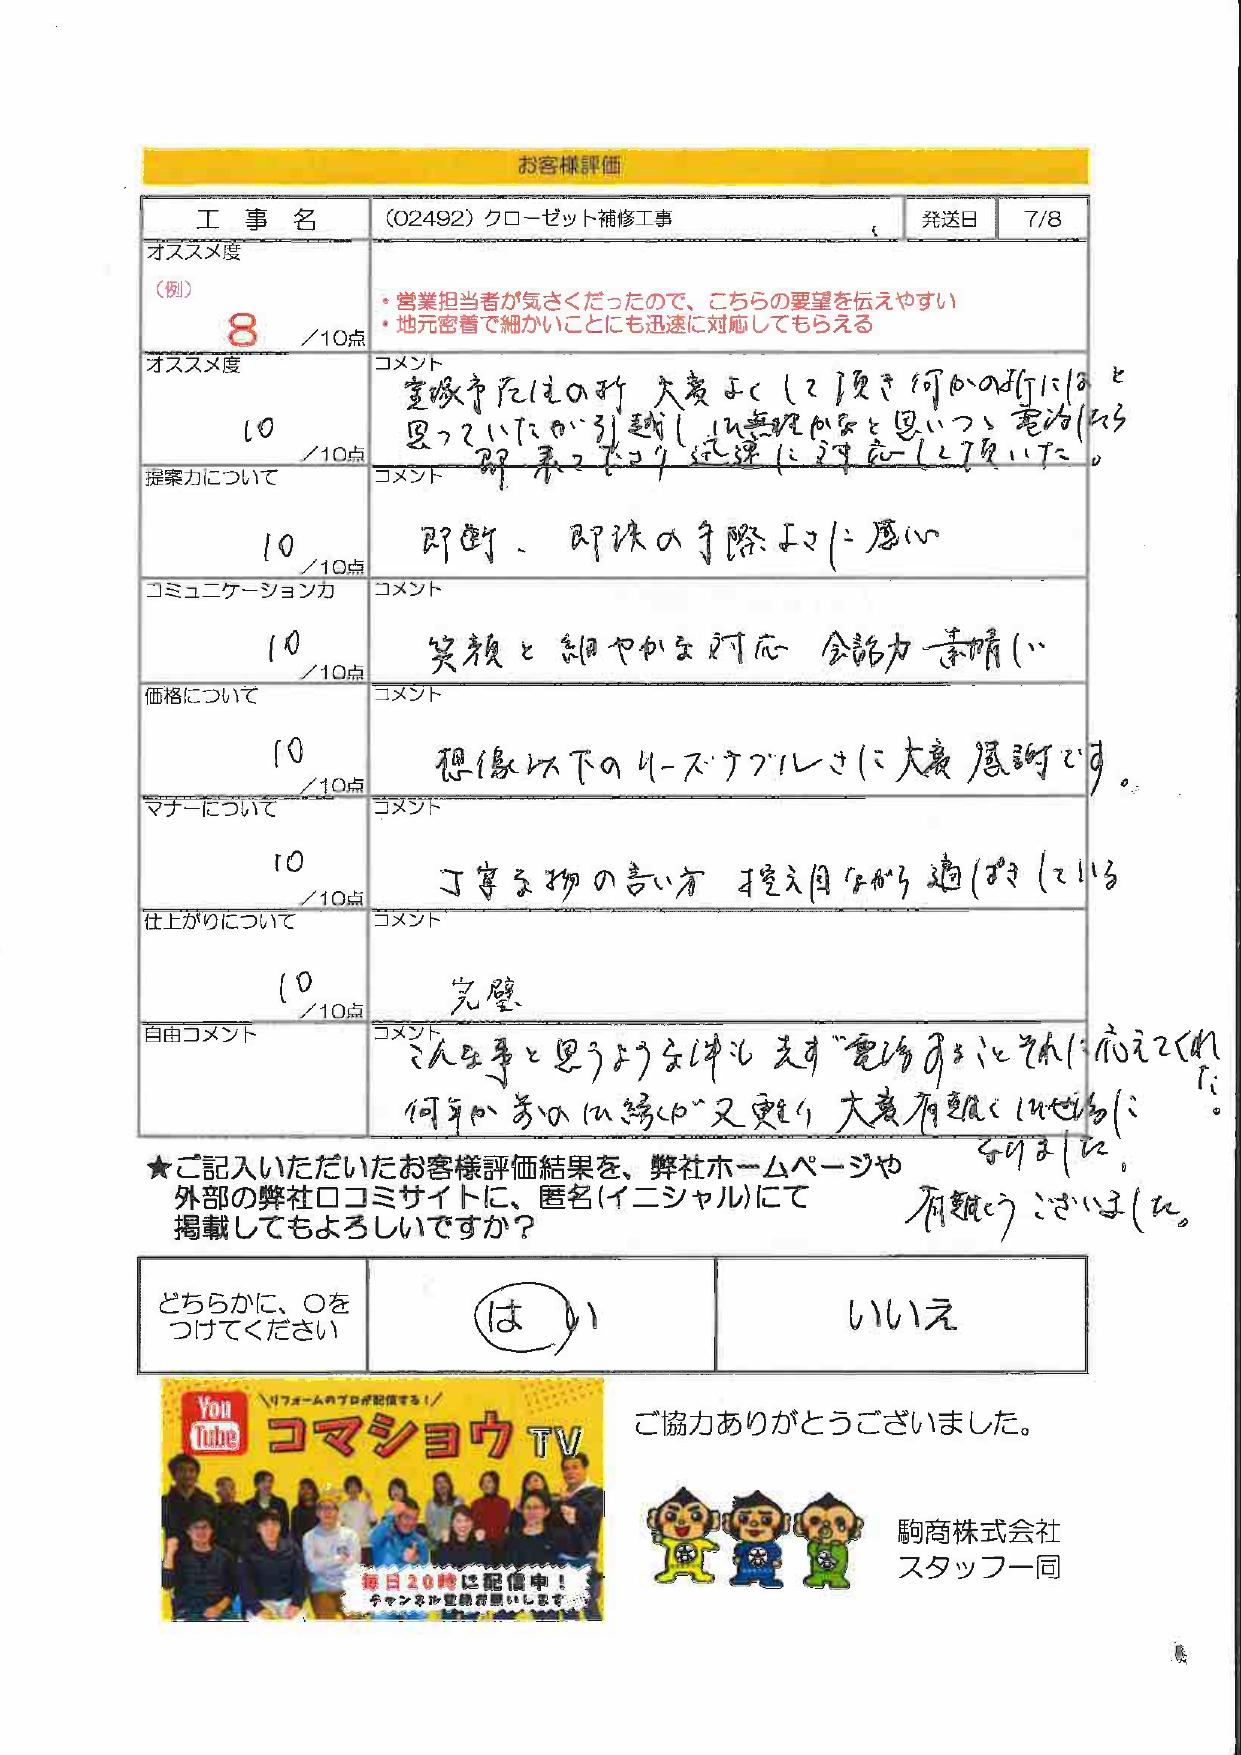 お客様評価
工事名 (02492) クローゼット補修工事 発送日 7/8
オススメ度
(例)
・営業担当者が気さくだったので、こちらの要望を伝えやすい
8 /10点 ・地元密着で細かいことにも迅速に対応してもらえる
オススメ度 コメント
宝塚市在住の折 大変よくして頂き 何かの折にはと
10 思っていたが引越し 無理かなと思いつつ電話したら
/10点 即 来て下さり 迅速に対応して頂いた。
提案力について コメント
10 即断、即決の手際よさに感心
/10点
コミュニケーション力 コメント
10 笑顔と細やかな対応 会話力 素晴しい
/10点
価格について コメント
10 想像以下のリーズナブルさに大変感謝です。
/10点
マナーについて コメント
10 丁寧な物の言い方 控え目ながら適ぱきしている
/10点
仕上がりについて コメント
10 完璧
/10点
自由コメント コメント
こんな事と思うような件も 先ず電話すること それに応えてくれた。
何年か前のご縁が又更り 大変有難くお世話に
なりました。
有難とうございました。
★ご記入いただいたお客様評価結果を、弊社ホームページや
外部の弊社口コミサイトに、匿名(イニシャル)にて
掲載してもよろしいですか?
どちらかに、○を
つけてください
はい いいえ
You
Tube
\リフォームのプロが配信する!/
コマショウTV
毎日20時に配信中!
チャンネル登録お願いします
ご協力ありがとうございました。
駒商株式会社
スタッフ一同